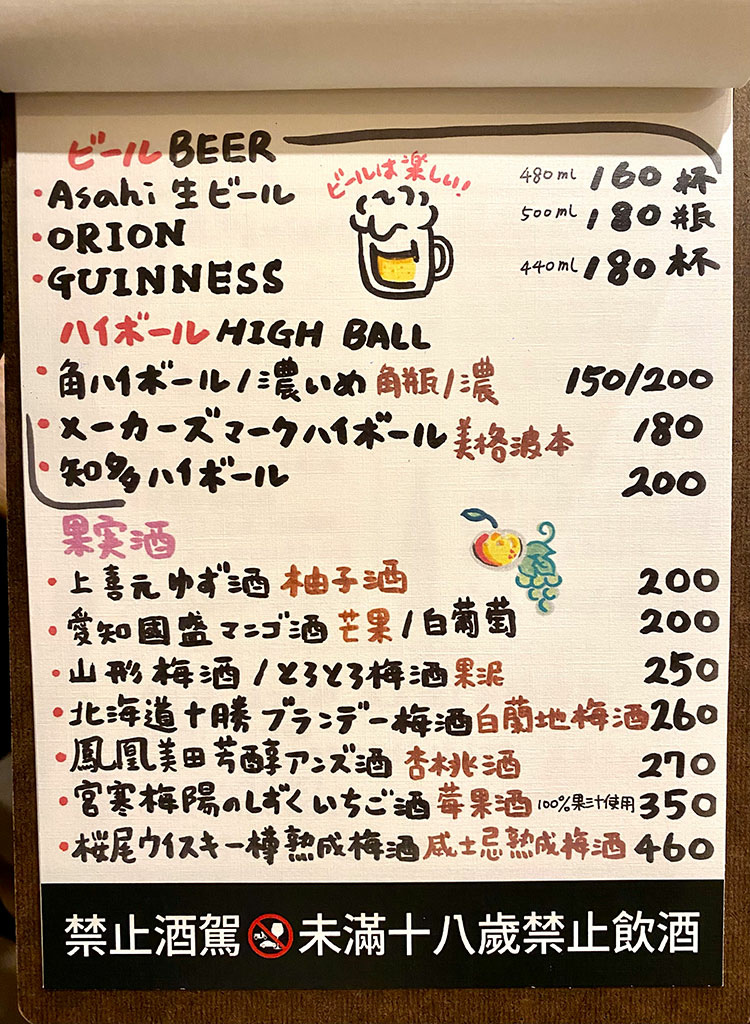 ビール BEER
ビールは楽しい!
・Asahi 生ビール 480ml 160杯
・ORION 500ml 180瓶
・GUINNESS 440ml 180杯
ハイボール HIGH BALL
・角ハイボール/濃いめ 角瓶/濃 150/200
・メーカーズマークハイボール 美格波本 180
・知多ハイボール 200
果実酒
・上喜元ゆず酒 柚子酒 200
・愛知國盛マンゴ酒 芒果/白葡萄 200
・山形梅酒/とろとろ梅酒 果泥 250
・北海道十勝ブランデー梅酒 白蘭地梅酒 260
・鳳凰美田芳醇アンズ酒 杏桃酒 270
・宮寒梅陽のしずくいちご酒 莓果酒 100%果汁使用 350
・桜尾ウイスキー樽熟成梅酒 威士忌熟成梅酒 460
禁止酒駕 未滿十八歲禁止飲酒